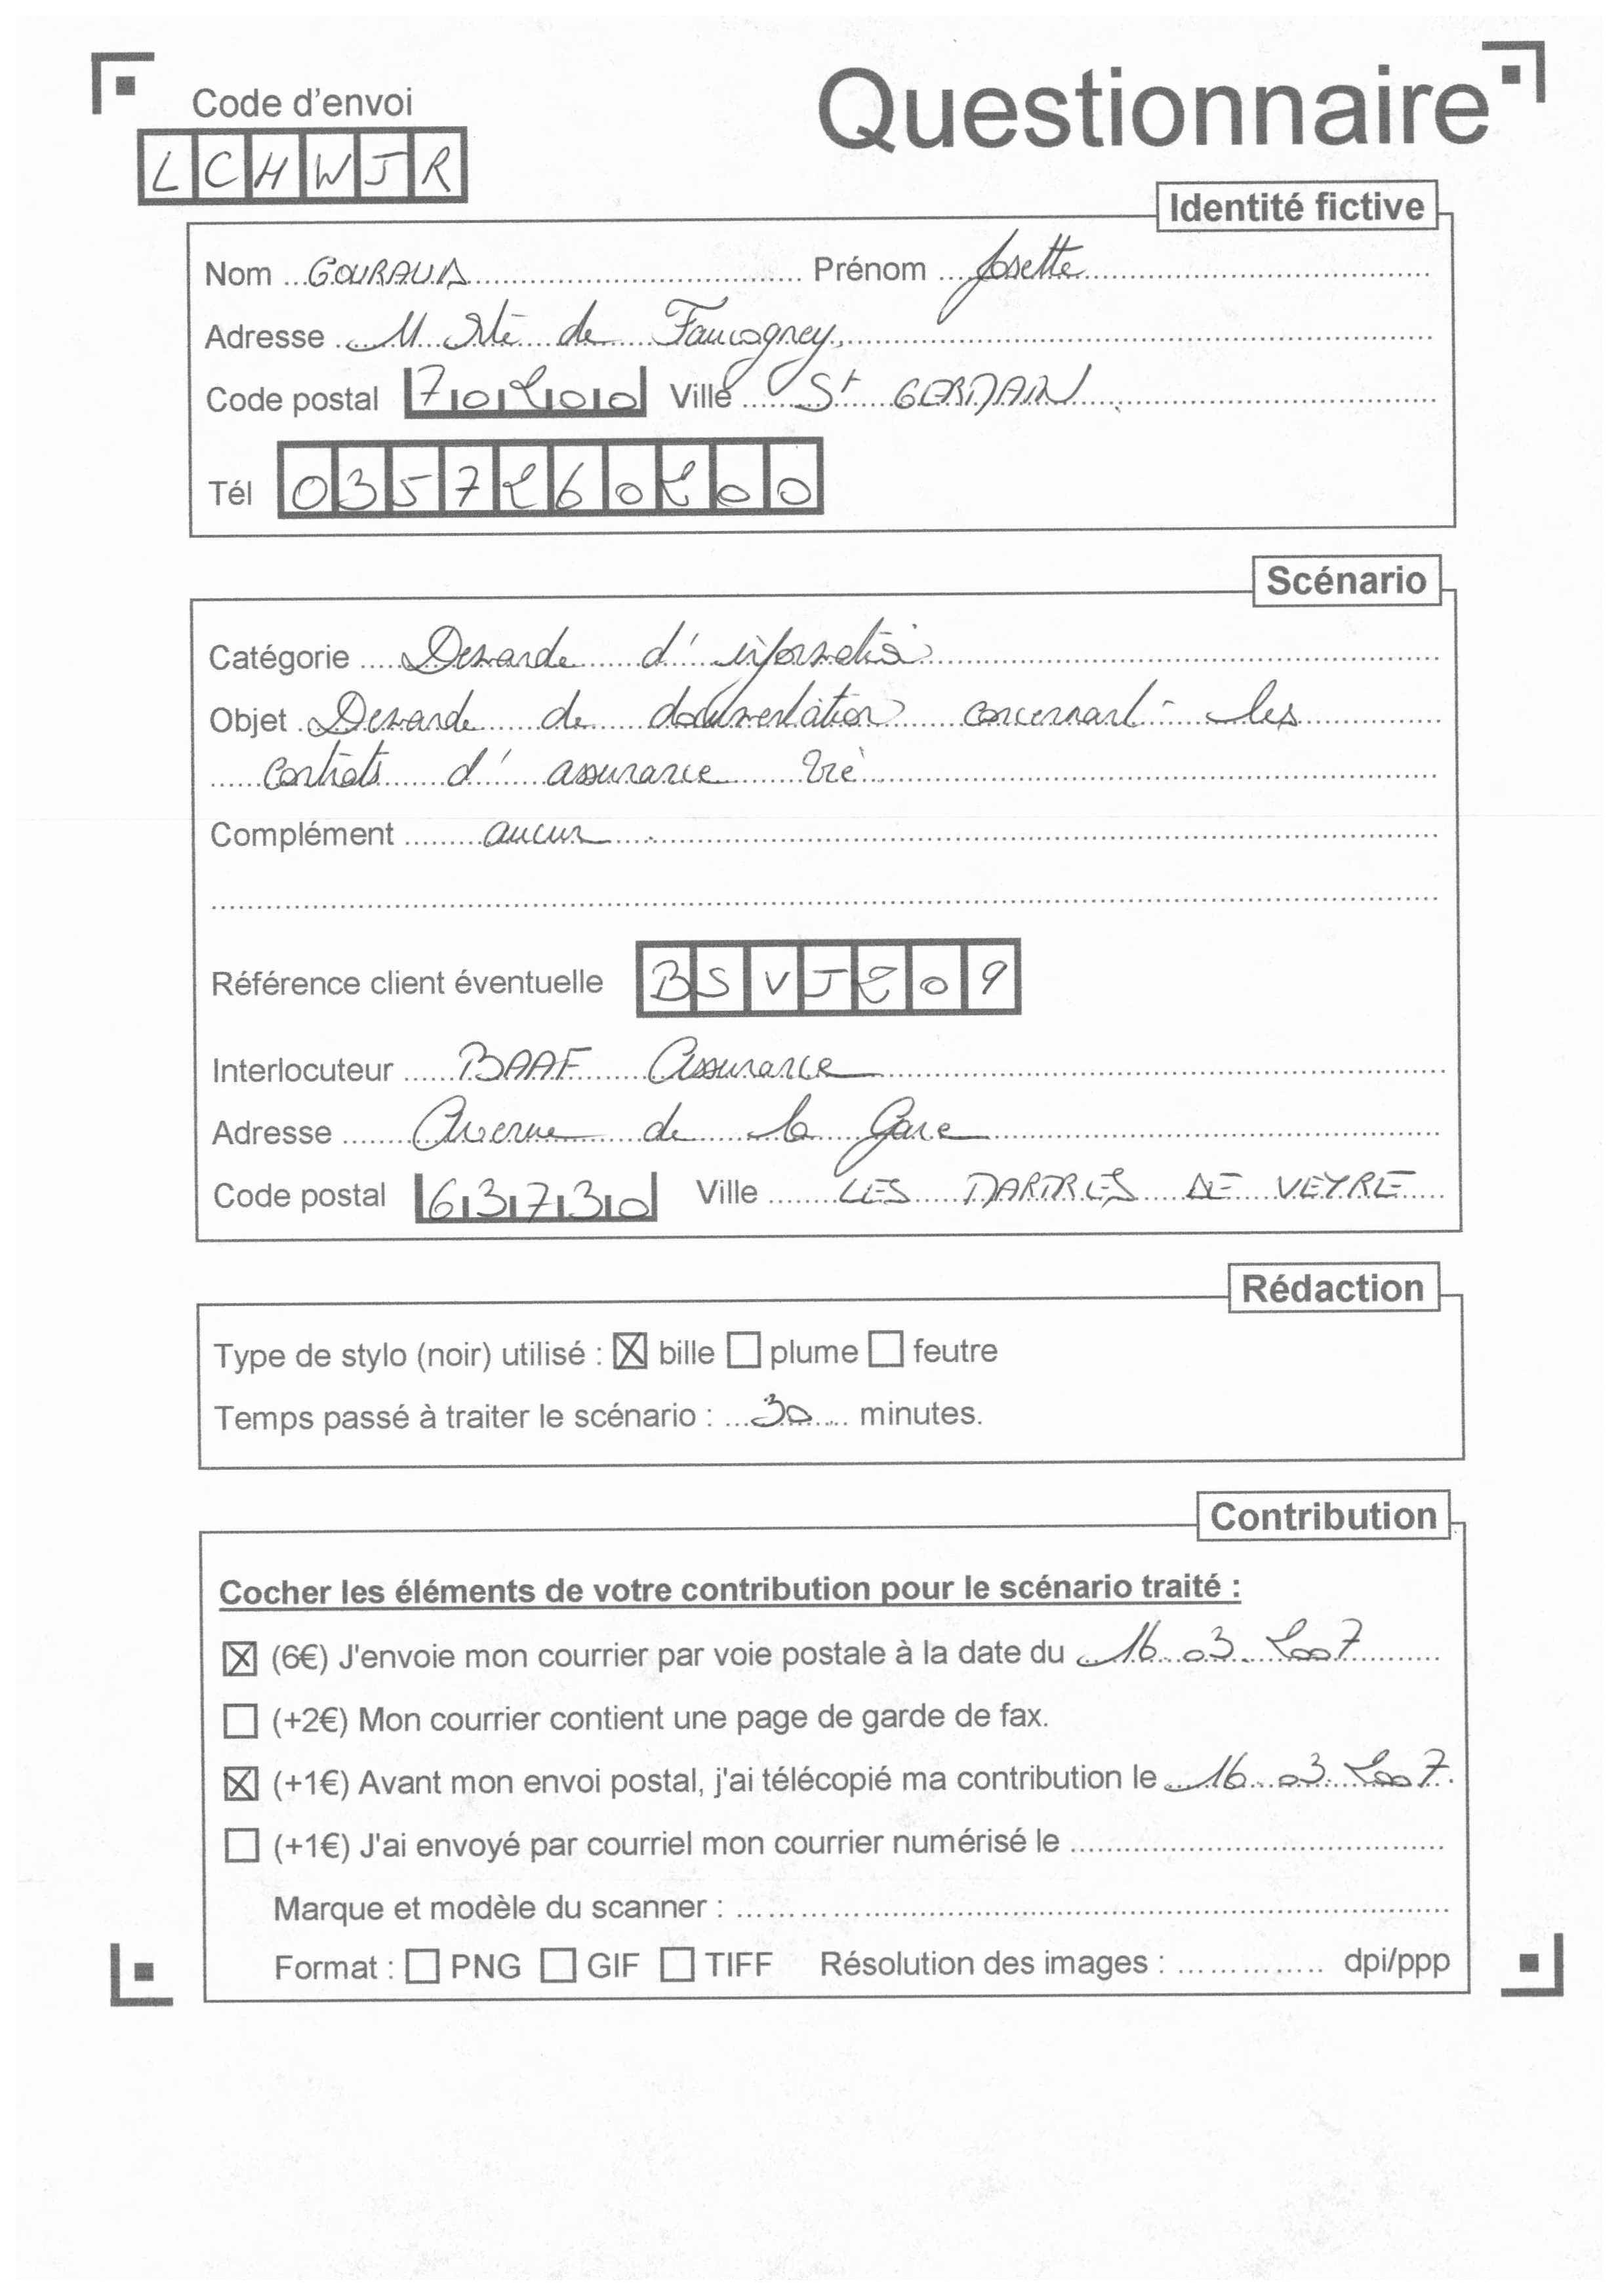 Questionnaire
Code d'envoi
LCHWJR
Identité fictive
Nom GOURAUD Prénom Josette
Adresse 11 Rte de Faucogney
Code postal 70200 Ville St GERMAIN
Tél 0357260200
Scénario
Catégorie Demande d'information
Objet Demande de documentation concernant les
contrats d'assurance vie
Complément aucun
Référence client éventuelle BSVJ209
Interlocuteur BAAF Assurance
Adresse Avenue de la Gare
Code postal 63730 Ville LES MARTRES DE VEYRE
Rédaction
Type de stylo (noir) utilisé : ☒ bille ☐ plume ☐ feutre
Temps passé à traiter le scénario : 30 minutes.
Contribution
Cocher les éléments de votre contribution pour le scénario traité :
☒ (6€) J'envoie mon courrier par voie postale à la date du 16.03.2007
☐ (+2€) Mon courrier contient une page de garde de fax.
☒ (+1€) Avant mon envoi postal, j'ai télécopié ma contribution le 16.03.2007.
☐ (+1€) J'ai envoyé par courriel mon courrier numérisé le
Marque et modèle du scanner :
Format : ☐ PNG ☐ GIF ☐ TIFF Résolution des images : dpi/ppp